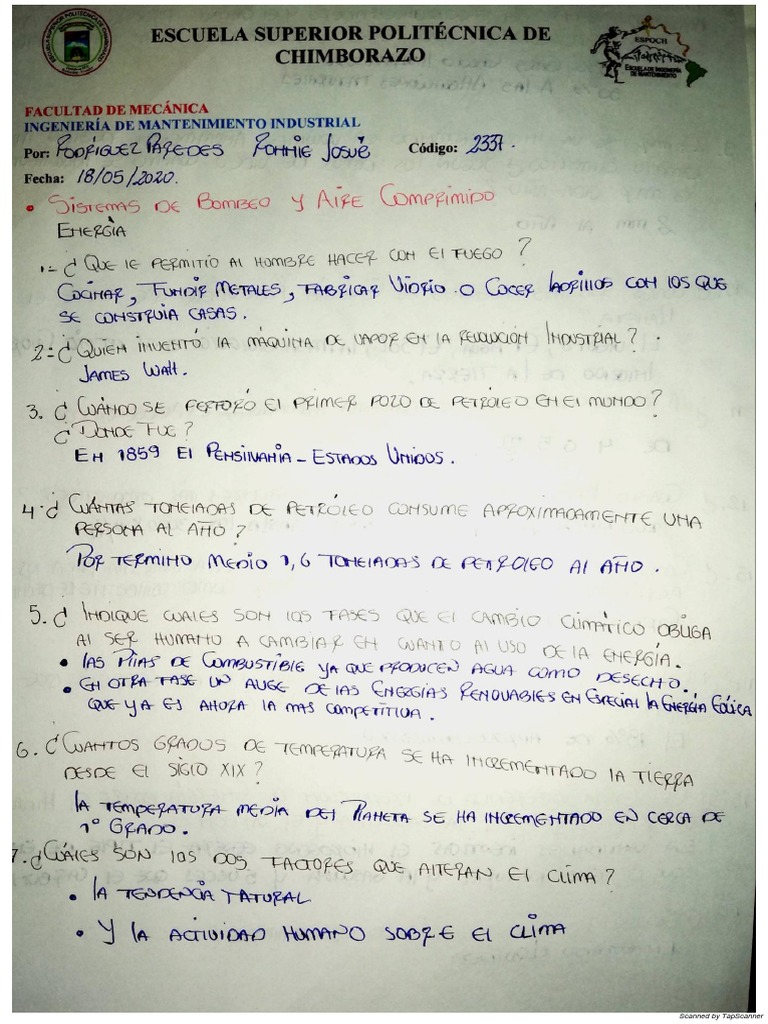 ESCUELA SUPERIOR POLITÉCNICA DE
CHIMBORAZO
ESPOCH
ESCUELA DE INGENIERÍA
DE MANTENIMIENTO
FACULTAD DE MECÁNICA
INGENIERÍA DE MANTENIMIENTO INDUSTRIAL
Por: RODRÍGUEZ PAREDES RONNIE JOSUÉ Código: 2337.
Fecha: 18/05/2020.
• SISTEMAS DE BOMBEO Y AIRE COMPRIMIDO
ENERGÍA
1.- ¿ QUE LE PERMITIO AL HOMBRE HACER CON El FUEGO ?
COCINAR, FUNDIR METALES, FABRICAR VIDRIO O COCER LADRILLOS CON LOS QUE
SE CONSTRUIA CASAS.
2.- ¿ QUIEN INVENTÓ LA MÁQUINA DE VAPOR EN LA REVOLUCIÓN INDUSTRIAL ?
JAMES WATT.
3. ¿ CUÁNDO SE PERFORÓ El PRIMER POZO DE PETRÓLEO EN El MUNDO ?
¿ DONDE FUE ?
EN 1859 El PENSILVANIA - ESTADOS UNIDOS.
4. ¿ CUÁNTAS TONELADAS DE PETRÓLEO CONSUME APROXIMADAMENTE UNA
PERSONA AL AÑO ?
POR TERMINO MEDIO 1,6 TONELADAS DE PETRÓLEO AL AÑO.
5. ¿ INDIQUE CUALES SON LOS FASES QUE El CAMBIO CLIMÁTICO OBLIGA
AL SER HUMANO A CAMBIAR EN CUANTO AL USO DE LA ENERGÍA.
• LAS PILAS DE COMBUSTIBLE YA QUE PRODUCEN AGUA COMO DESECHO.
• EN OTRA FASE UN AUGE DE LAS ENERGÍAS RENOVABLES EN ESPECIAL LA ENERGÍA EÓLICA
QUE YA ES AHORA LA MAS COMPETITIVA.
6. ¿ CUANTOS GRADOS DE TEMPERATURA SE HA INCREMENTADO LA TIERRA
DESDE EL SIGLO XIX ?
LA TEMPERATURA MEDIA DEL PLANETA SE HA INCREMENTADO EN CERCA DE
1° GRADO.
7. ¿ CUÁLES SON LOS DOS FACTORES QUE ALTERAN El CLIMA ?
• LA TENDENCIA TATURAL
• Y LA ACTIVIDAD HUMANO SOBRE El CLIMA
Scanned by TapScanner